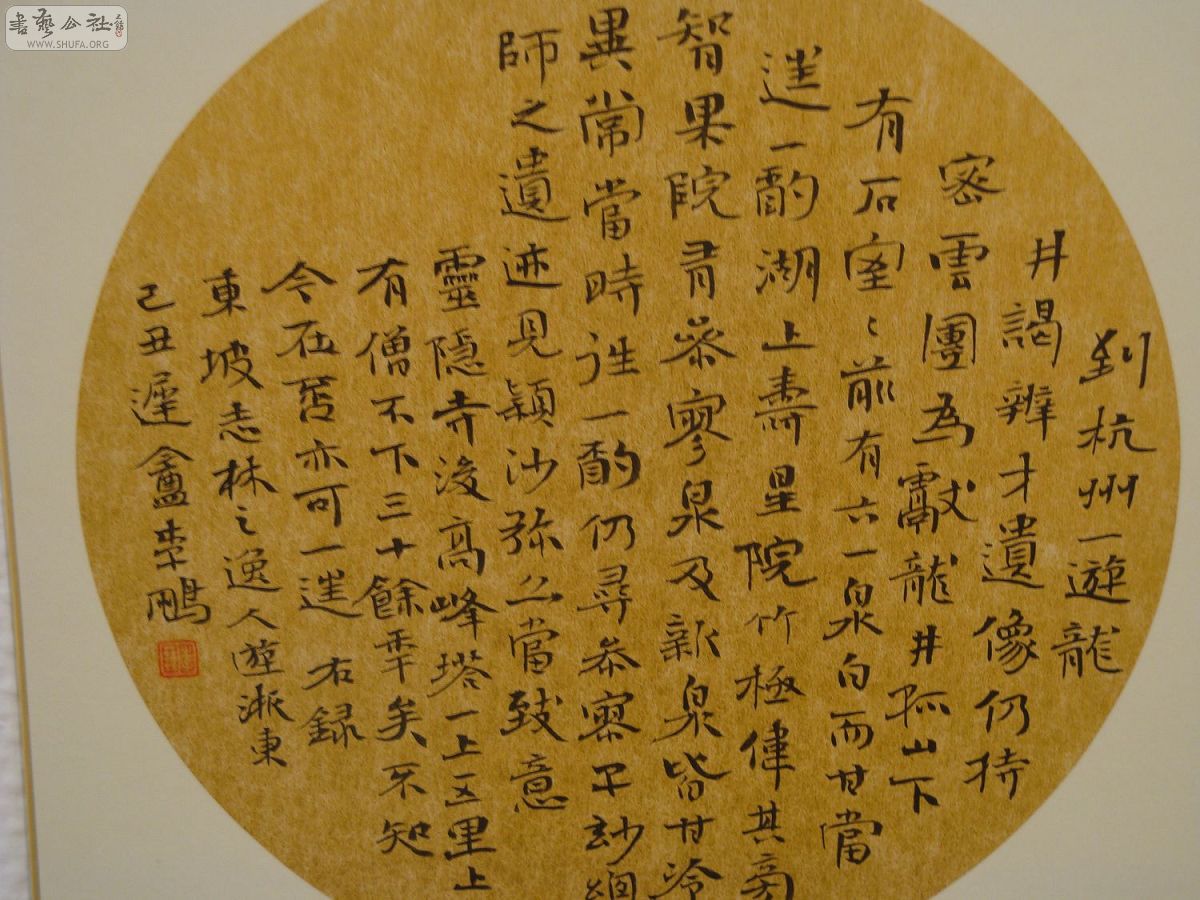 書藝公社
WWW.SHUFA.ORG
到杭州一遊龍
井謁辨才遺像仍持
密雲團為獻龍井孤山下
有石室〻前有六一泉白而甘當
往一酌湖上壽星院竹極偉其旁
智果院有參寥泉及新泉皆甘冷
異常當時往一酌仍尋參寥子妙緬
師之遺迹見穎沙弥亦當致意
靈隱寺後高峰塔一上五里上
有僧不下三十餘年矣不知
今在否亦可一往 右録
東坡志林之逸人遊浙東
己丑 李鵬